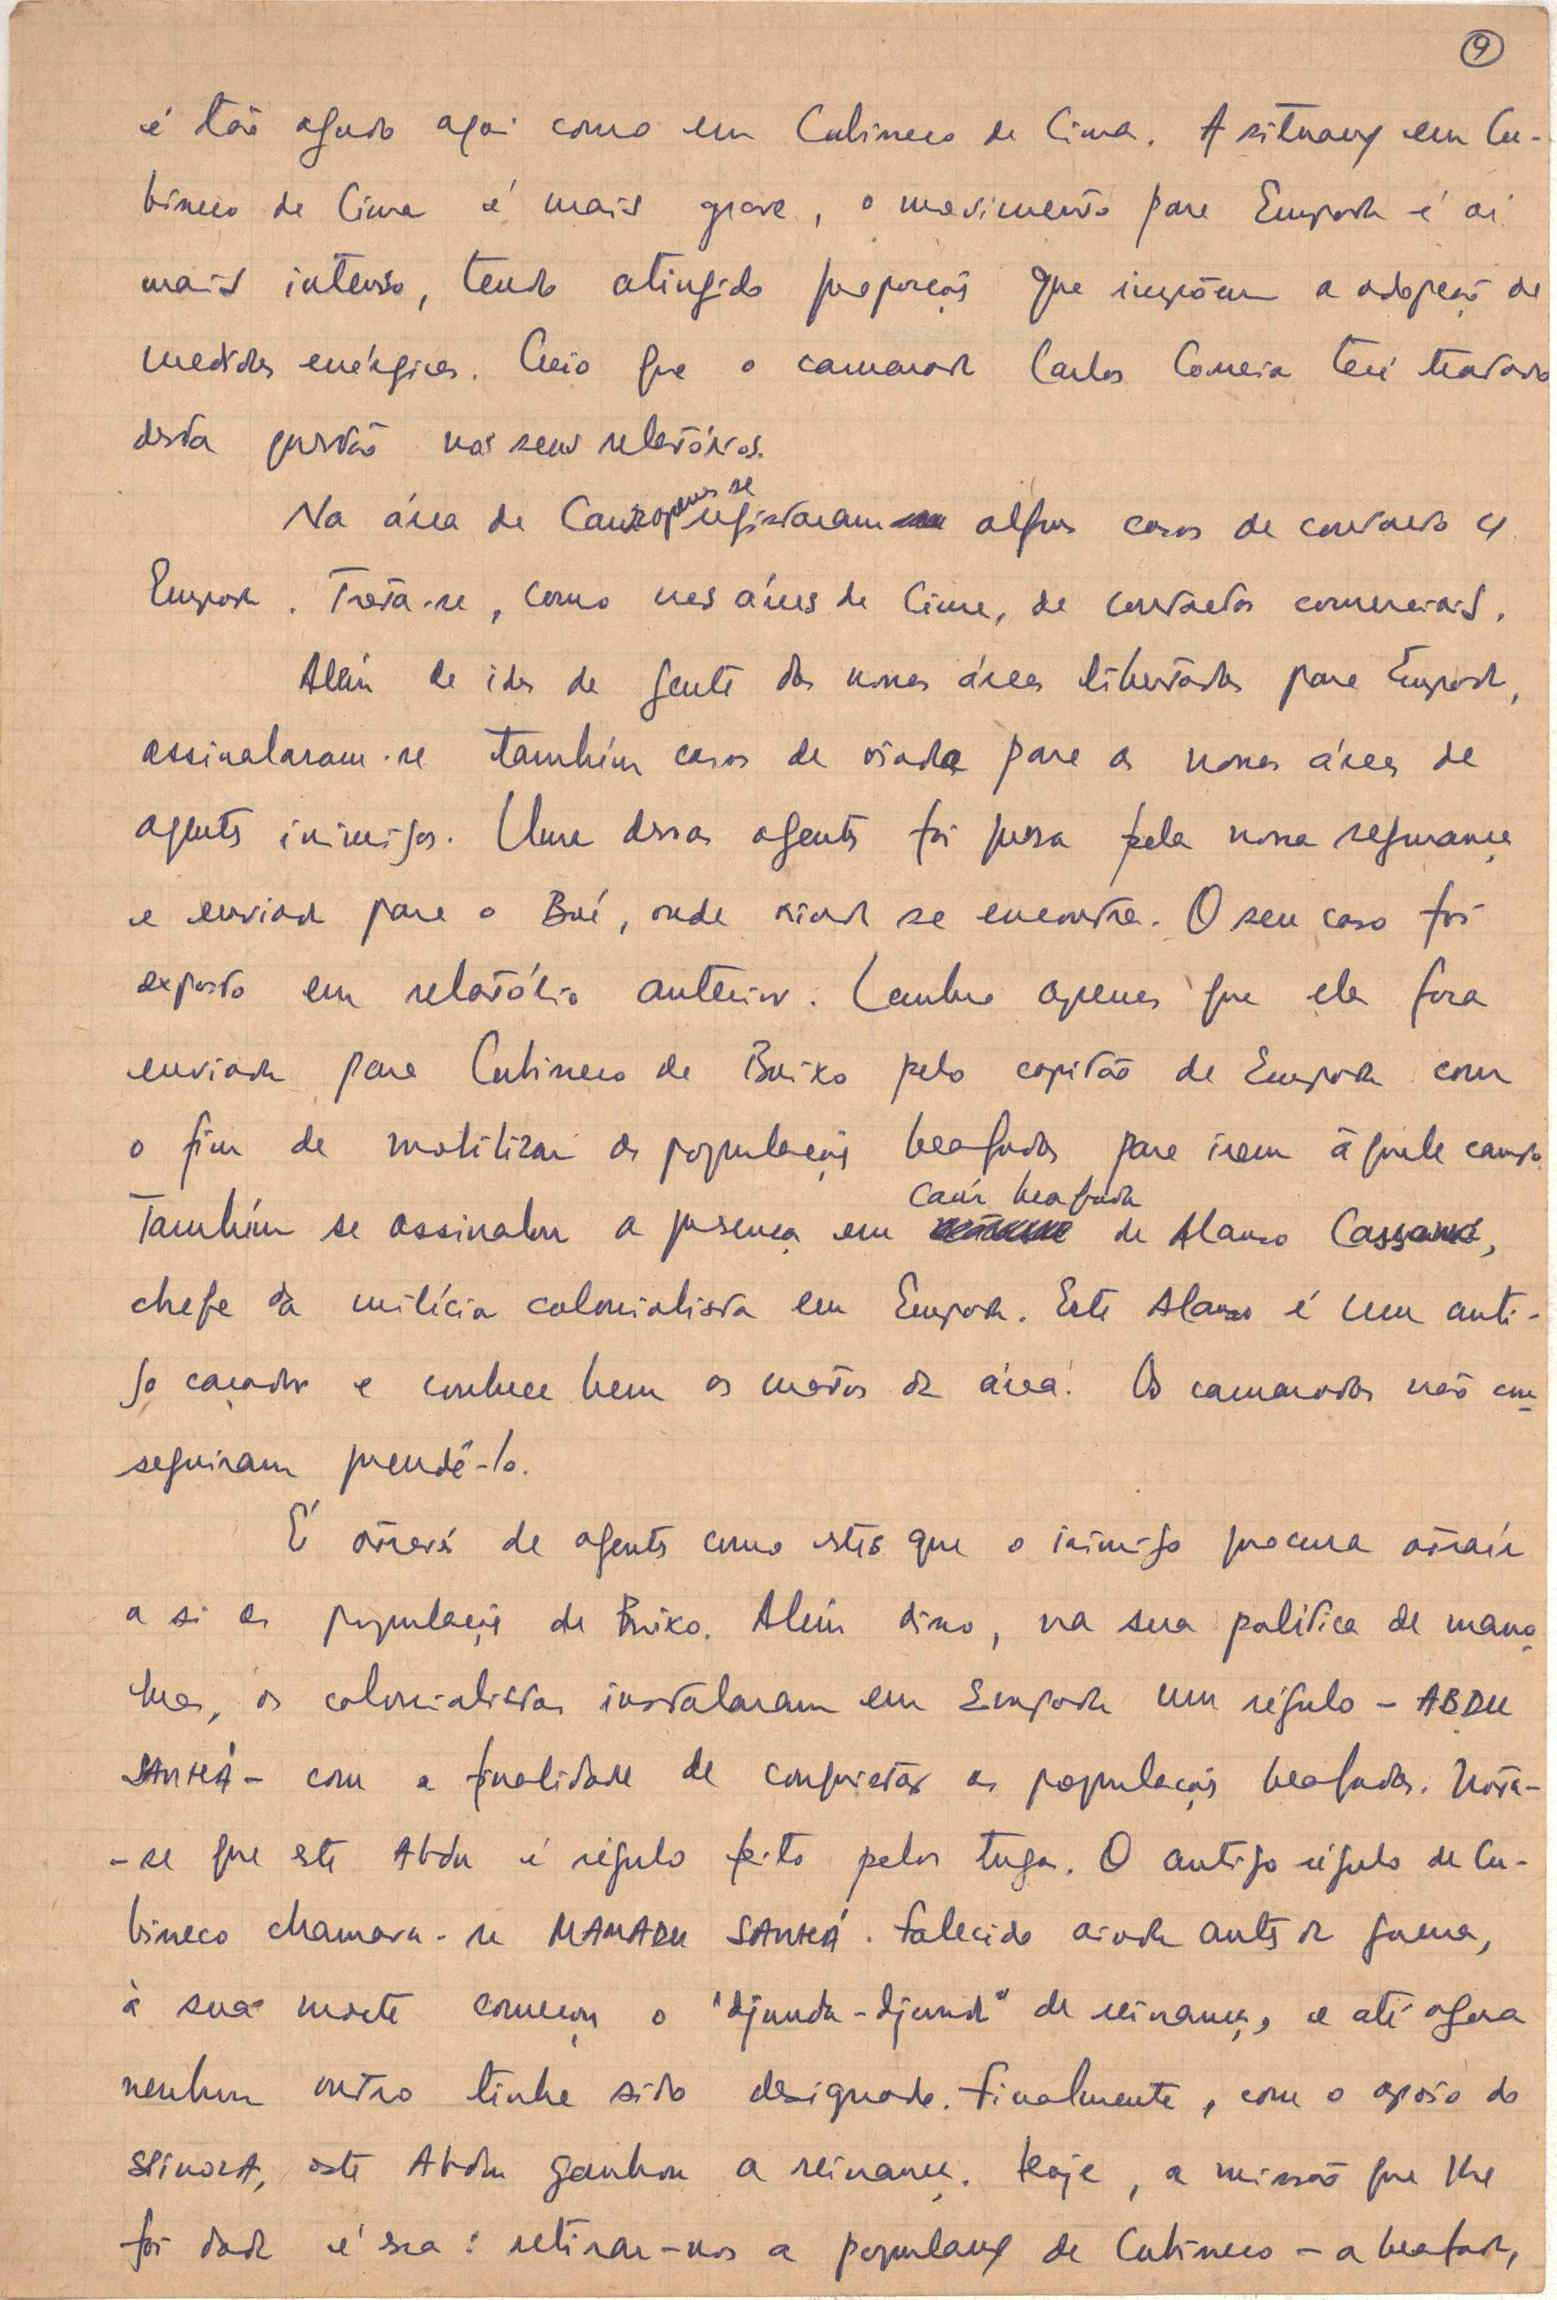 9
é tão agudo aqui como em Cubisseco de Cima. A situação em Cu-
bisseco de Cima é mais grave, o movimento para Empada é aí
mais intenso, tendo atingido proporções que impõem a adopção de
medidas enérgicas. Creio que o camarada Carlos Correia terá tratado
desta questão nos seus relatórios.
Na área de Cauz apenas se registaram alguns casos de contacto c/
Empada. Trata-se, como nas áreas de Cima, de contactos comerciais.
Além de idas de gente das nossas áreas libertadas para Empada,
assinalaram-se também casos de vinda para as nossas áreas de
agentes inimigos. Uma dessas agentes foi presa pela nossa segurança
e enviada para o Boé, onde ainda se encontra. O seu caso foi
exposto em relatório anterior. Lembro apenas que ela fora
enviada para Cubisseco de Baixo pelo capitão de Empada com
o fim de mobilizar as populações beafadas para irem àquele campo.
Também se assinalou a presença em Caur beafada de Alanso Cassamá,
chefe da milícia colonialista em Empada. Este Alanso é um anti-
go caçador e conhece bem os matos da área. Os camaradas não con
seguiram prendê-lo.
É através de agentes como estes que o inimigo procura atrair
a si as populações de Baixo. Além disso, na sua política de mano
bras, os colonialistas instalaram em Empada um régulo - ABDU
SANHÁ - com a finalidade de conquistar as populações beafadas. Nota-
-se que este Abdu é régulo feito pelos tugas. O antigo régulo de Cu-
bisseco chamava-se MAMADU SANHÁ. Falecido ainda antes da guerra,
à sua morte começou o "djunda-djunda" de reinança, e até agora
nenhum outro tinha sido designado. Finalmente, com o apoio do
SPINOLA, este Abdu ganhou a reinança. Hoje, a missão que lhe
foi dada é essa: retirar-nos a população de Cubisseco - a beafada,